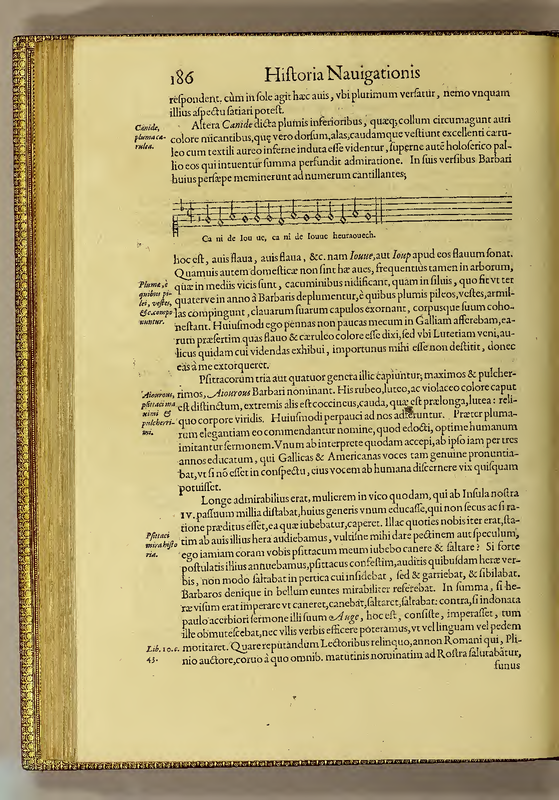 186 Hiſtoria Nauigationis
reſpondent. cùm in ſole agit hæc auis, vbi plurimum verſatur, nemo vnquam
illius aſpectu ſatiari poteſt.
Canide,
pluma cæ-
rulea.
Altera Canide dicta plumis inferioribus, quæq; collum circumagunt auri
colore micantibus, quę vero dorſum, alas, caudamque veſtiunt excellenti cæru-
leo cum textili aureo inferne induta eſſe videntur, ſuperne autē holoſerico pal-
lio eos qui intuentur ſumma perfundit admiratione. In ſuis verſibus Barbari
huius perſæpe meminerunt ad numerum cantillantes;
Ca ni de Iou ue, ca ni de Iouue heuraouech.
hoc eſt, auis flaua, auis flaua, &c. nam Iouue, aut Ioup apud eos flauum ſonat.
Quamuis autem domeſticæ non ſint hæ aues, frequentius tamen in arborum,
Pluma, è
quibus pi-
lei, veſtes,
&c. compo
nuntur.
quæ in mediis vicis ſunt, cacuminibus nidificant, quam in ſiluis, quo fit vt ter
quaterve in anno à Barbaris deplumentur, è quibus plumis pileos, veſtes, armil-
las compingunt, clauarum ſuarum capulos exornant, corpusque ſuum coho-
neſtant. Huiuſmodi ego pennas non paucas mecum in Galliam afferebam, ea-
rum præſertim quas flauo & cæruleo colore eſſe dixi, ſed vbi Lutetiam veni, au-
licus quidam cui videndas exhibui, importunus mihi eſſe non deſtitit, donec
eas à me extorqueret.
Pſitacorum tria aut quatuor genera illic capiuntur; maximos & pulcher-
Aiourous,
pſittaci ma
ximi &
pulcherri-
mi.
rimos, Aiourous Barbari nominant. His rubeo, luteo, ac violaceo colore caput
eſt diſtinctum, extremis alis eſt coccineus, cauda, quæ eſt prælonga, lutea: reli-
quo corpore viridis. Huiuſmodi perpauci ad nos adferuntur. Præter pluma-
rum elegantiam eo commendantur nomine, quod edocti, optime humanum
imitantur ſermonem. Vnum ab interprete quodam accepi, ab ipſo iam per tres
annos educatum, qui Gallicas & Americanas voces tam genuine pronuntia-
bat, vt ſi nō eſſet in conſpectu, eius vocem ab humana diſcernere vix quiſquam
potuiſſet.
Longe admirabilius erat, mulierem in vico quodam, qui ab Inſula noſtra
IV. paſſuum millia diſtabat, huius generis vnum educaſſe, qui non ſecus ac ſi ra-
tione præditus eſſet, ea quæ iubebatur, caperet. Illac quoties nobis iter erat, ſta-
Pſittaci
mira hiſto
ria.
tim ab auis illius hera audiebamus, vultiſne mihi dare pectinem aut ſpeculum,
ego iamiam coram vobis pſittacum meum iubebo canere & ſaltare? Si forte
poſtulatis illius annuebamus, pſittacus confeſtim, auditis quibuſdam heræ ver-
bis, non modo ſaltabat in pertica cui inſidebat, ſed & garriebat, & ſibilabat.
Barbaros denique in bellum euntes mirabiliter referebat. In ſumma, ſi he-
ræ viſum erat imperare vt caneret, canebat, ſaltaret, ſaltabat: contra, ſi indonata
paulo acerbiori ſermone illi ſuum Auge, hoc eſt, conſiſte, imperaſſet, tum
ille obmuteſcebat, nec vllis verbis efficere poteramus, vt vel linguam vel pedem
Lib. 10. c.
43.
motitaret. Quare reputandum Lectoribus relinquo, annon Romani qui, Pli-
nio auctore, coruo à quo omnib. matutinis nominatim ad Roſtra ſalutabātur,
funus